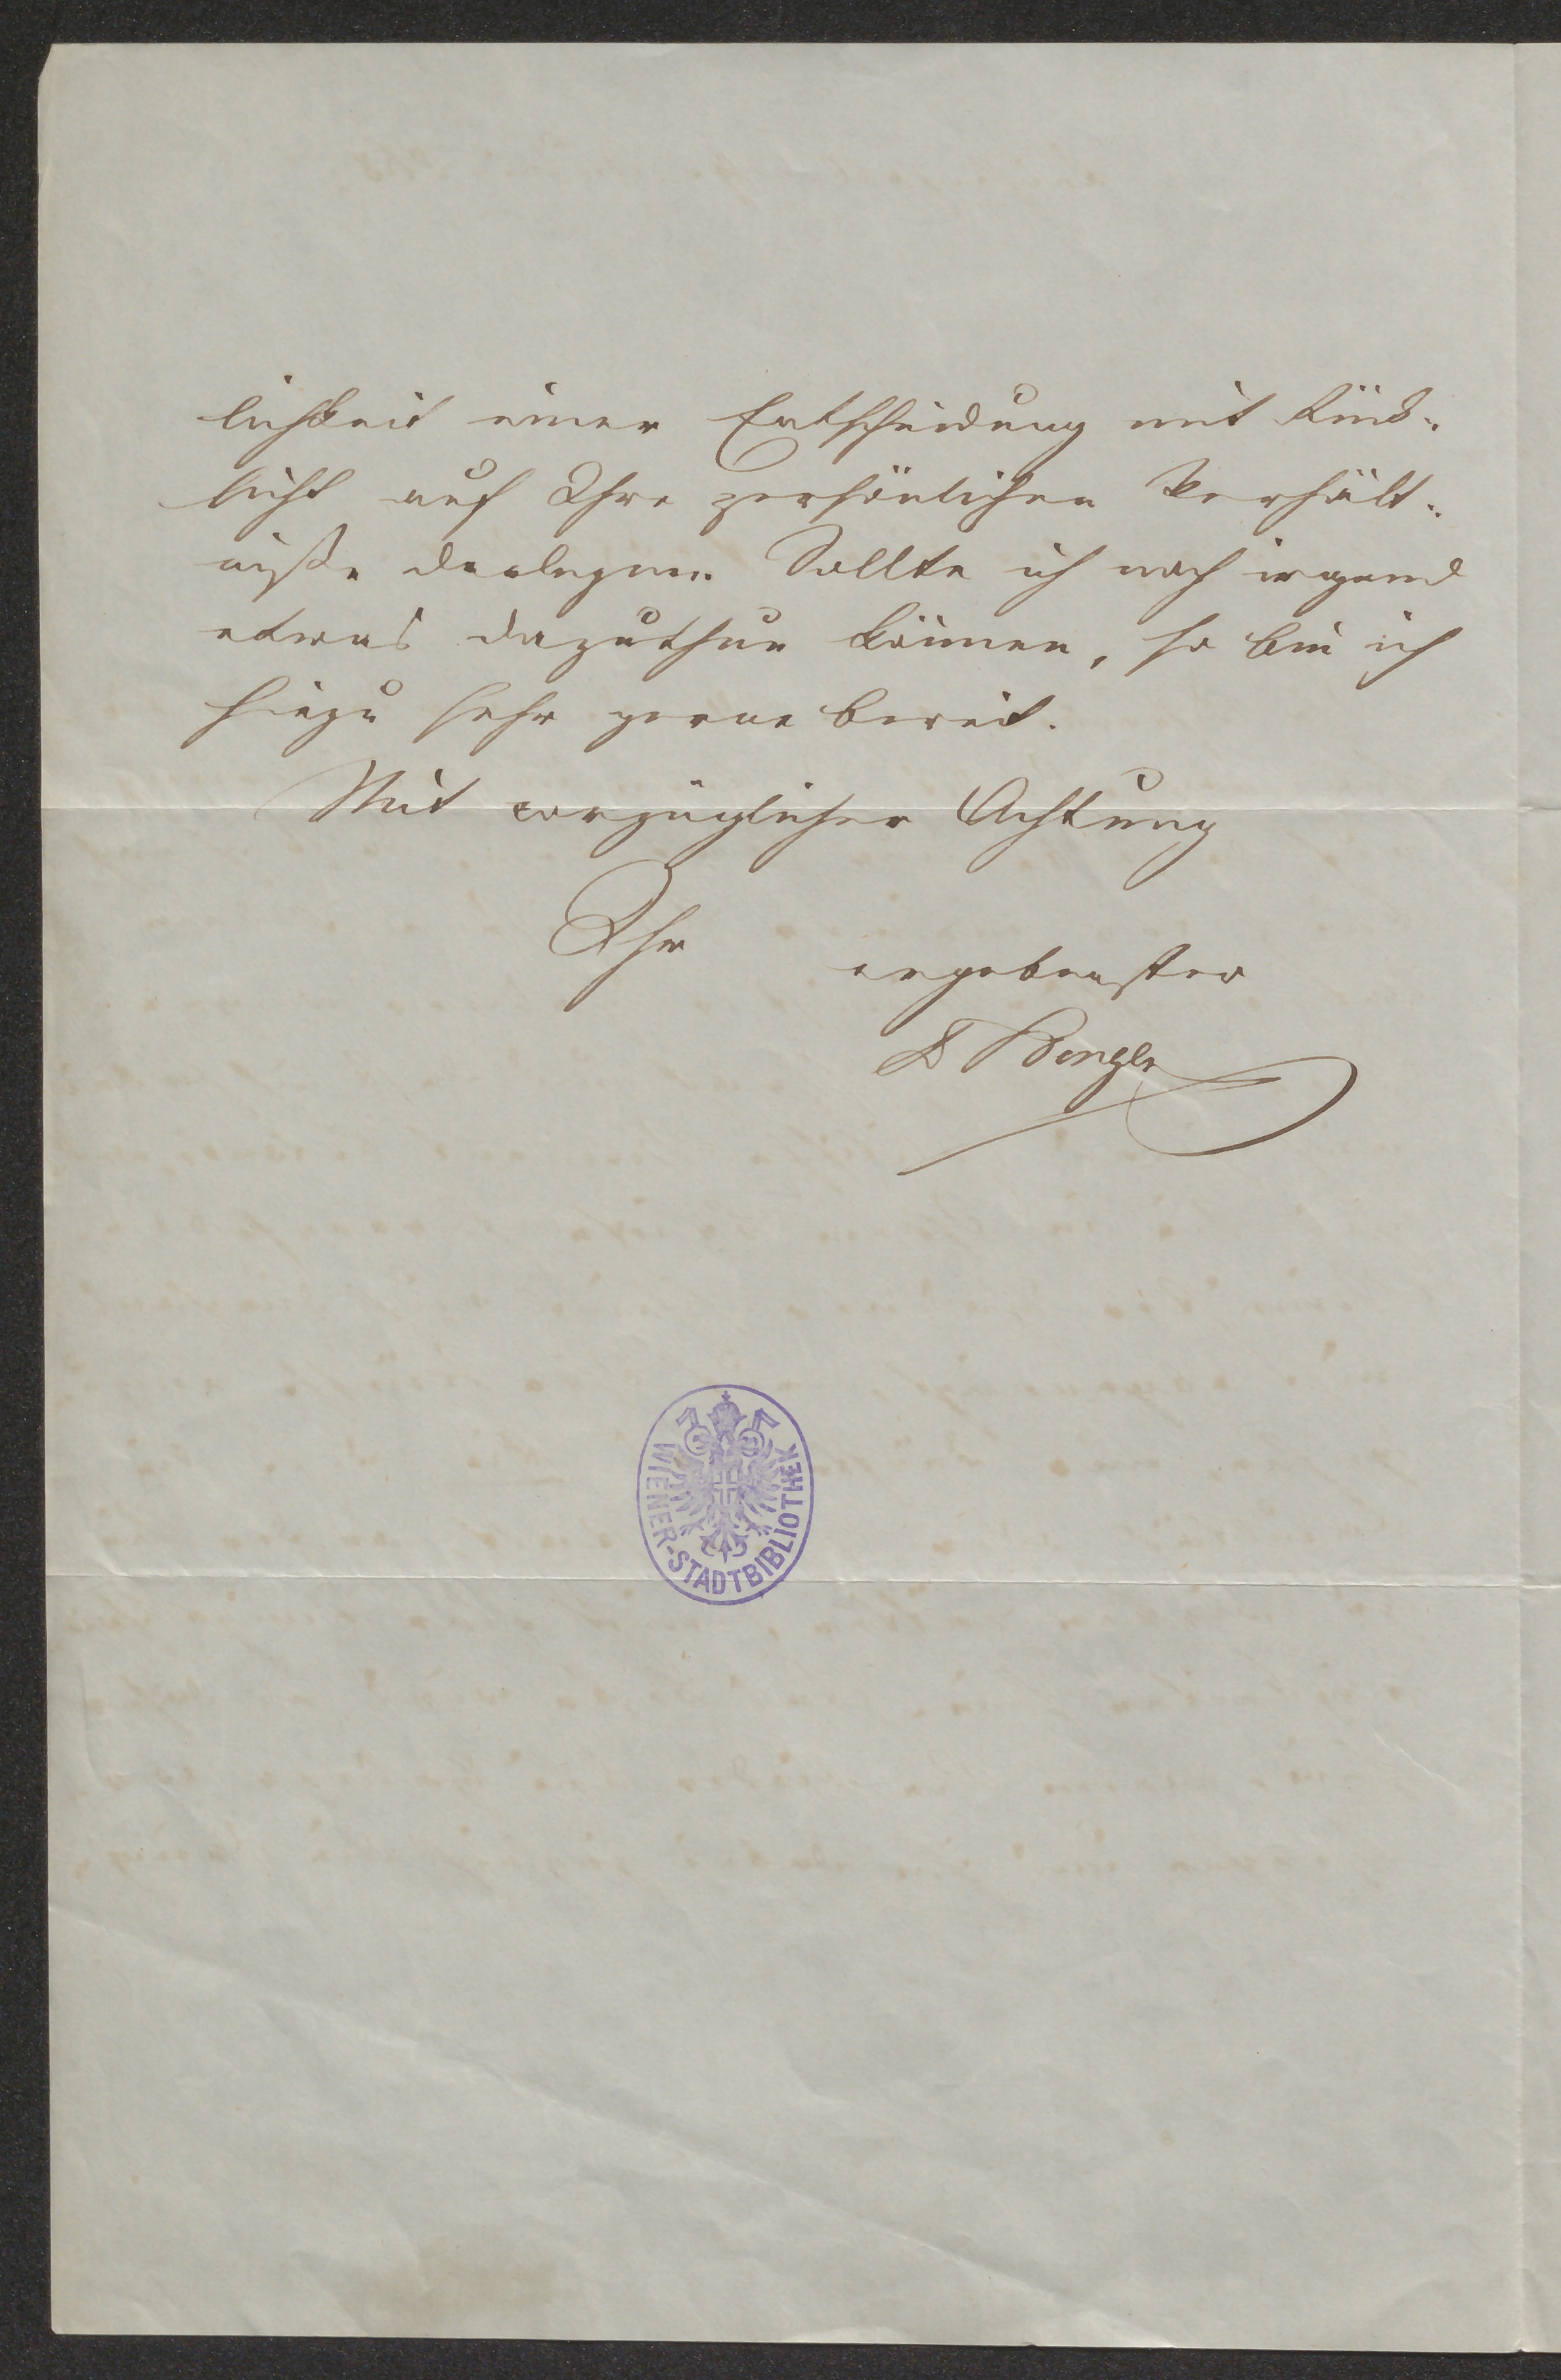 lichkeit einer Entscheidung mit Rück=
sicht auf Ihre persönlichen Verhält=
niße darlegen. Sollte ich noch irgend
etwas dazuthun können, so bin ich
hiezu sehr gerne bereit.
Mit vorzüglicher Achtung
Ihr
ergebenster
WIENER-STADTBIBLIOTHEK